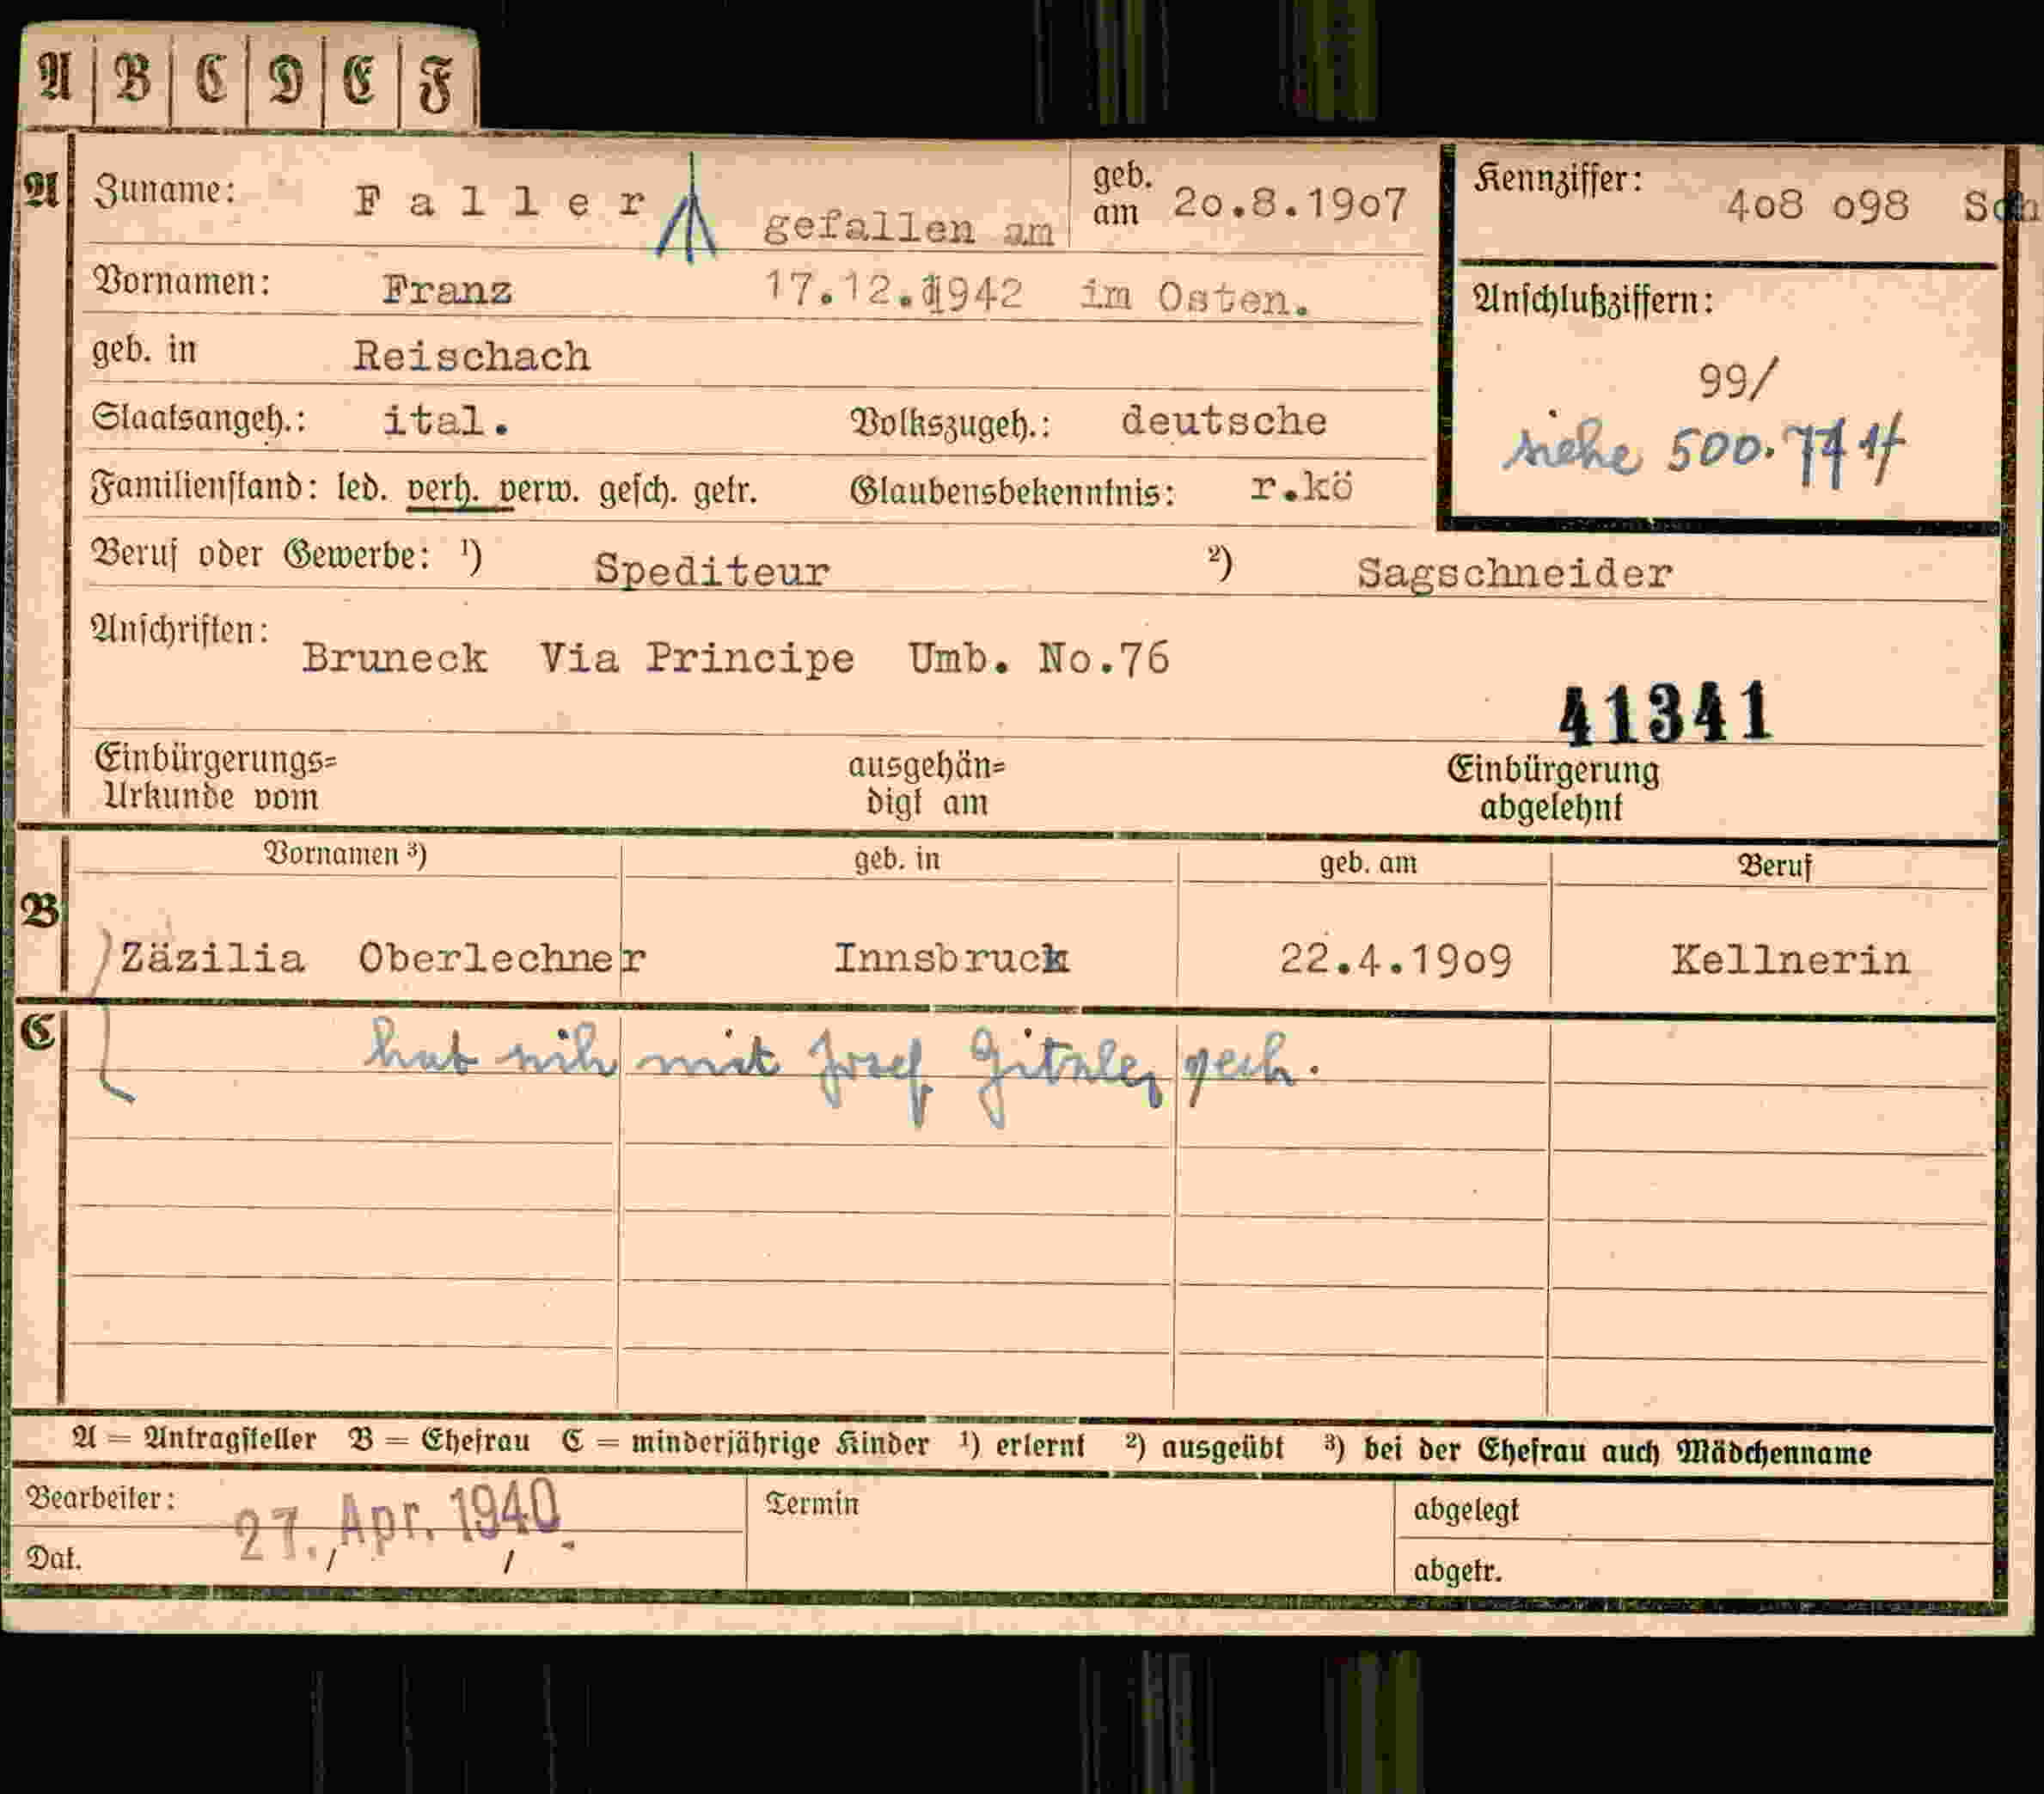 A B C D E F
A Zuname: Faller gefallen am geb. am 20.8.1907 Kennziffer: 408 098 Sch
Vornamen: Franz 17.12.1942 im Osten. Anschlußziffern:
geb. in Reischach 99/
Staatsangeh.: ital. Volkszugeh.: deutsche siehe 500.
Familienstand: led. verh. verw. gesch. getr. Glaubensbekenntnis: r.kö
Beruf oder Gewerbe: ¹) Spediteur ²) Sagschneider
Anschriften: Bruneck Via Principe Umb. No.76
41341
Einbürgerungs= ausgehän= Einbürgerung
Urkunde vom digt am abgelehnt
Vornamen ³) geb. in geb. am Beruf
B
Zäzilia Oberlechner Innsbruck 22.4.1909 Kellnerin
C hat sich mit Josef
A = Antragsteller B = Ehefrau C = minderjährige Kinder ¹) erlernt ²) ausgeübt ³) bei der Ehefrau auch Mädchenname
Bearbeiter: 27. Apr. 1940 Termin abgelegt
Dat. abgetr.